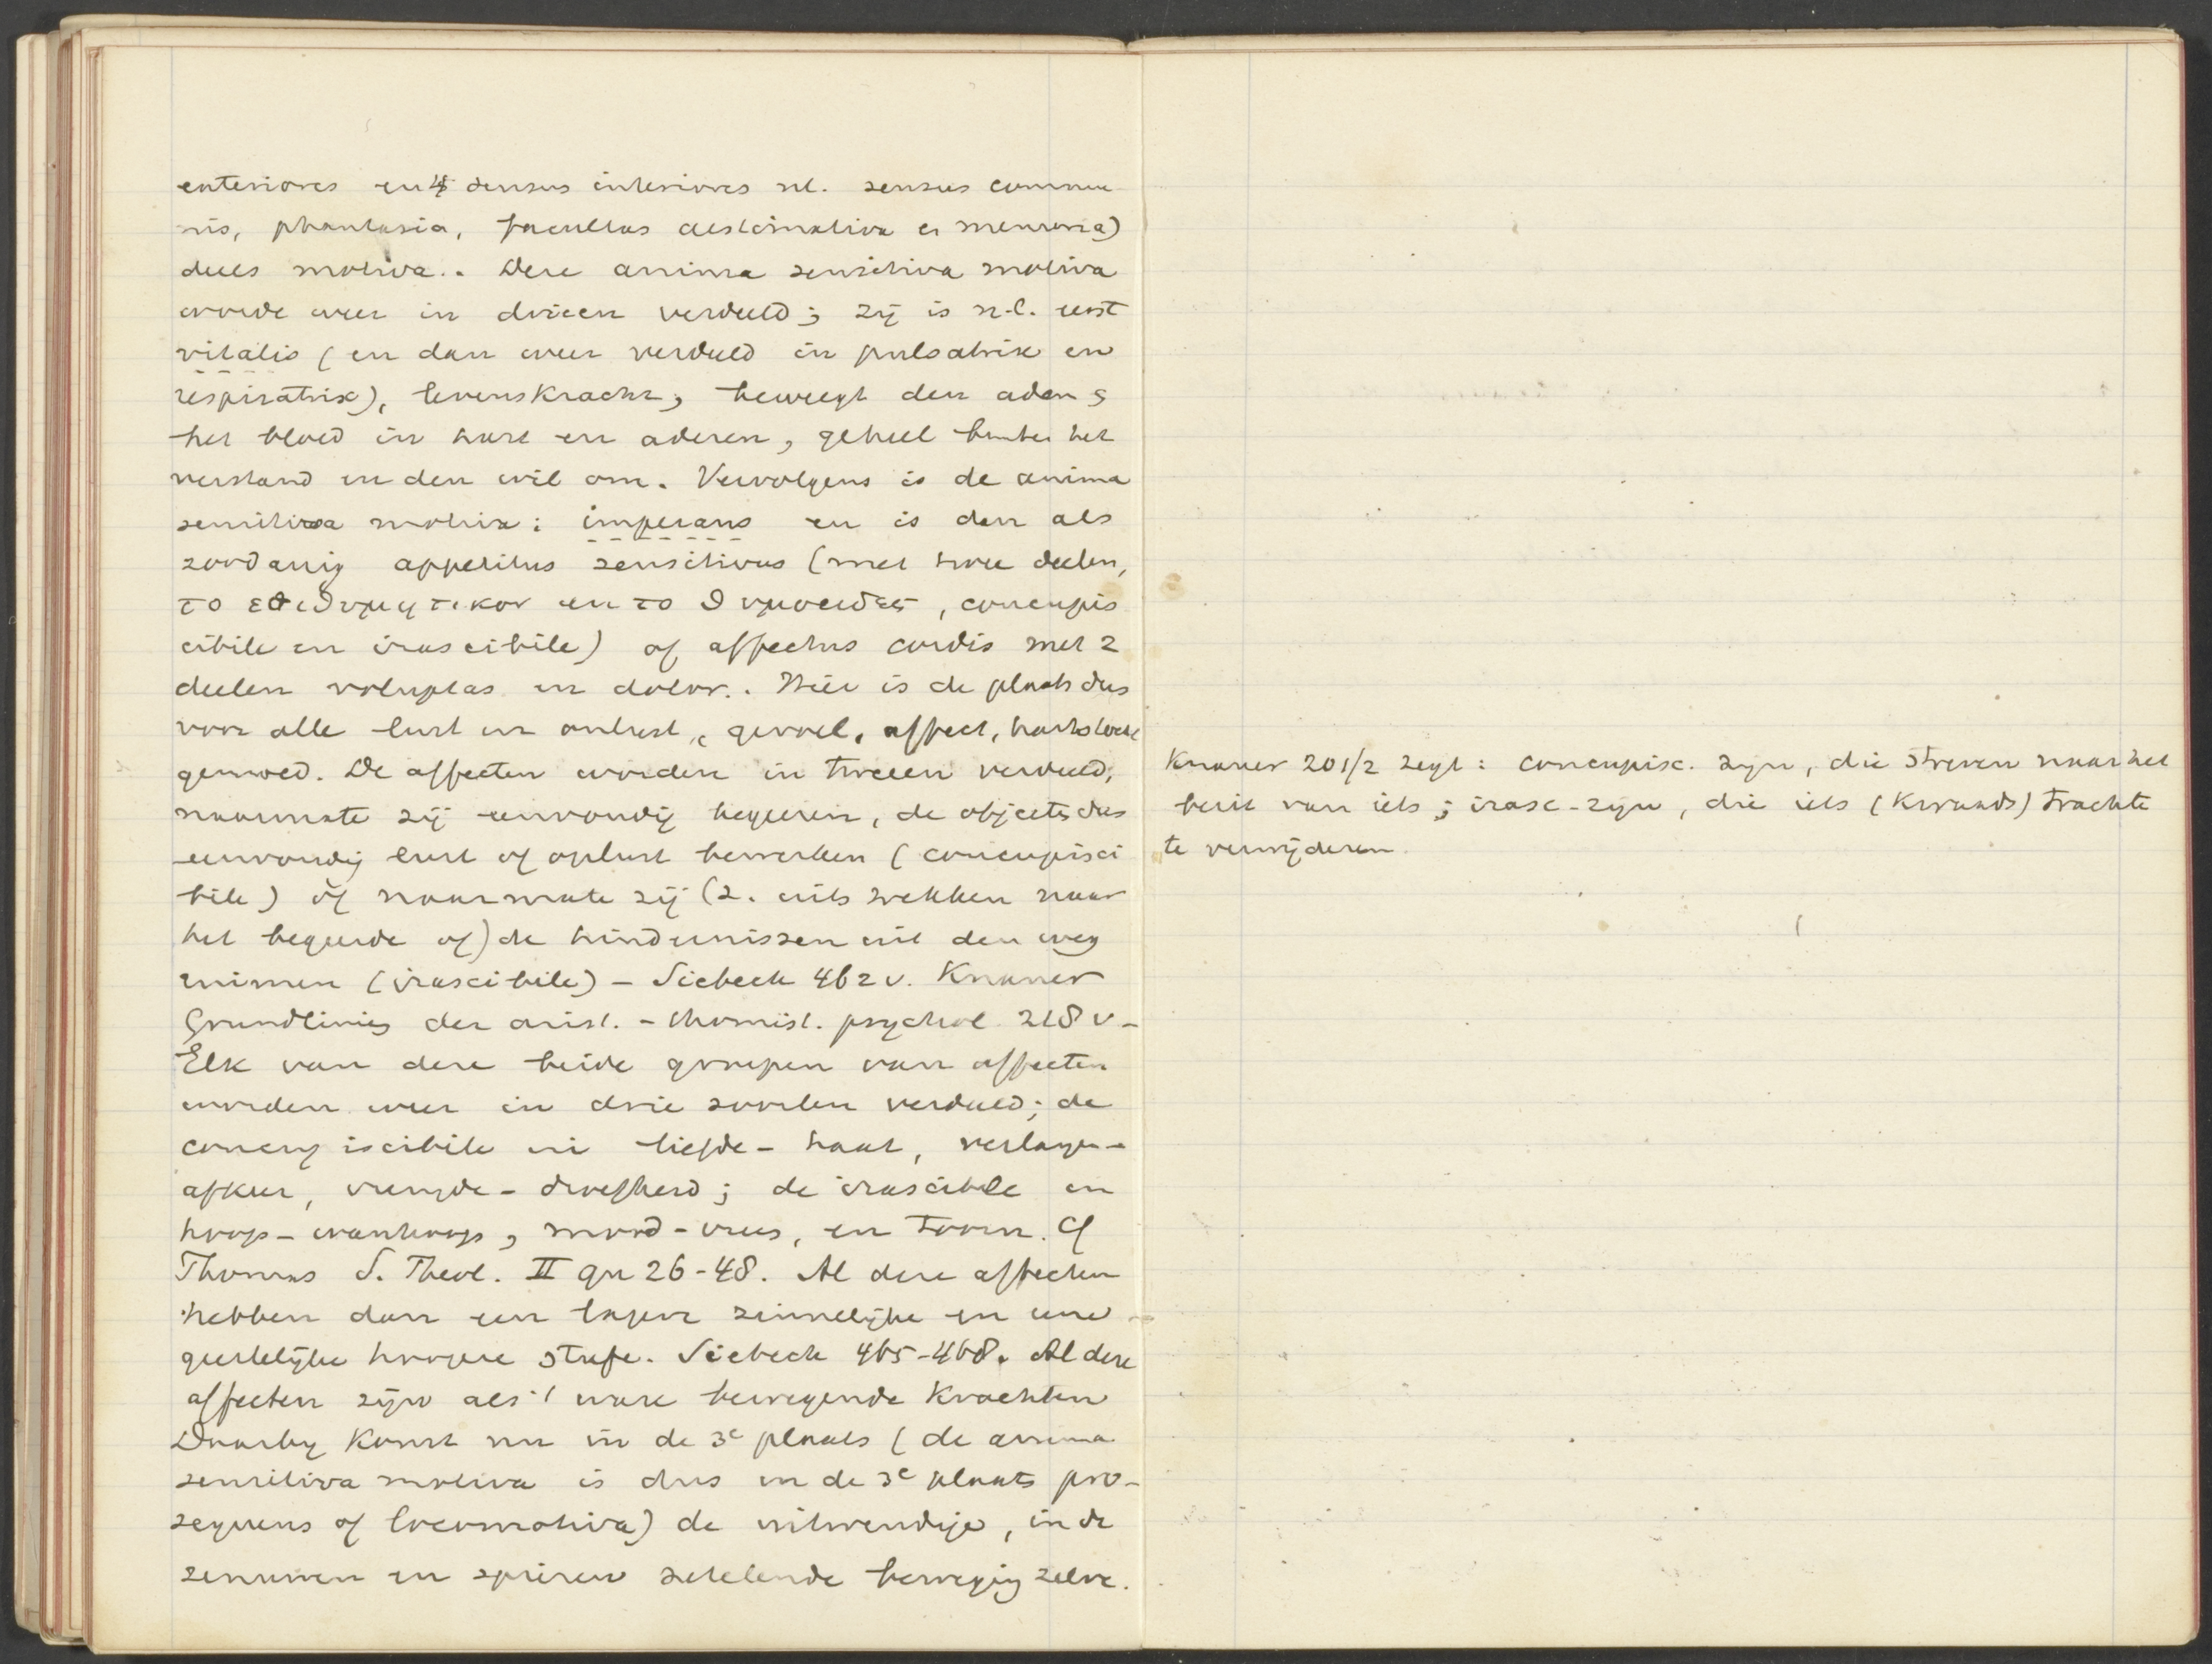 exteriores en 4 sensus interiores nl. sensus commu
nis, phantasia, facultas aestimativa en memoria)
deels motiva. Deze anima sensitiva motiva
wordt weer in drieen verdeeld; zij is n.l. eerst
vitalis (en dan weer verdeeld in pulsatrix en
respiratrix), levenskracht, beweegt den adem &
het bloed in hart en aderen, geheel buiten het
verstand en den wil om. Vervolgens is de anima
sensitiva motiva: imperans en is dan als
zoodanig appetitus sensitivus (met twee deelen,
το επιθυμητικον en το θυμοειδες, concupis
cibile en irascibile) of affectus cordis met 2
deelen voluptas en dolor. Hier is de plaats dus
voor alle lust en onlust, gevoel, affect, hartstocht
gemoed. De affecten worden in tweeen verdeeld,
naarmate zij eenvoudig begeeren, de objecten dus
eenvoudig lust of onlust bewerken (concupisci
bile) of naarmate zij (2. uitstrekken naar
het begeerde of) de hindernissen uit den weg
ruimen (irascibile) – Siebeck 462 v. Knauer
Grundlinien der arist. - thomist. psychol 218 v –
Elk van deze beide groepen van affecten
worden weer in drie soorten verdeeld; de
concupiscibile in liefde - haat, verlangen -
afkeer, vreugde - droefheid; de irascibile in
hoop - wanhoop, moed - vrees, en toorn. Cf
Thomas S. Theol. II qu 26-48. Al deze affecten
hebben dan een lagere zinnelijke en eene
geestelijke hoogere stufe. Siebeck 465-468. Al deze
affecten zijn als 't ware bewegende krachten
Daarbij komt nu in de 3e plaats (de anima
sensitiva motiva is dus in de 3e plaats pro-
sequens of locomotiva) de uitwendige, in de
zenuwen en spieren zetelende beweging zelve.
Knauer 201/2 zegt: concupisc. zijn, die streven naar het
bezit van iets; irasc. zijn, die iets (kwaads) trachte
te verwijderen.